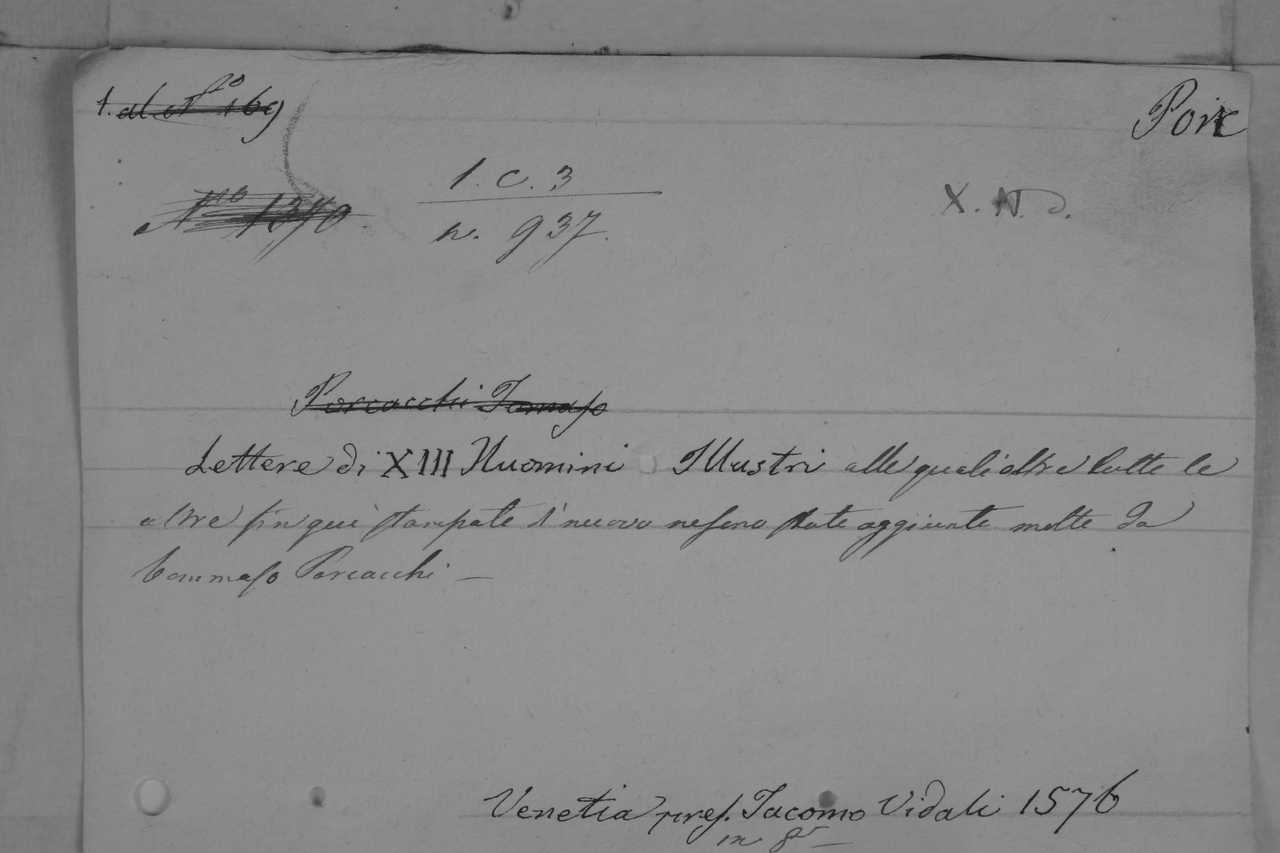 1. al No 169
Porc
1. C. 3
No 1370.
n. 937.
X. N. d.
Porcacchi Tomaso
Lettere di XIII Huomini Illustri alle quali oltre tutte le
altre fin qui stampate di nuovo ne sono state aggiunte molte da
Tommaso Porcacchi —
Venetia pres. Jacomo Vidali 1576
in 8o —